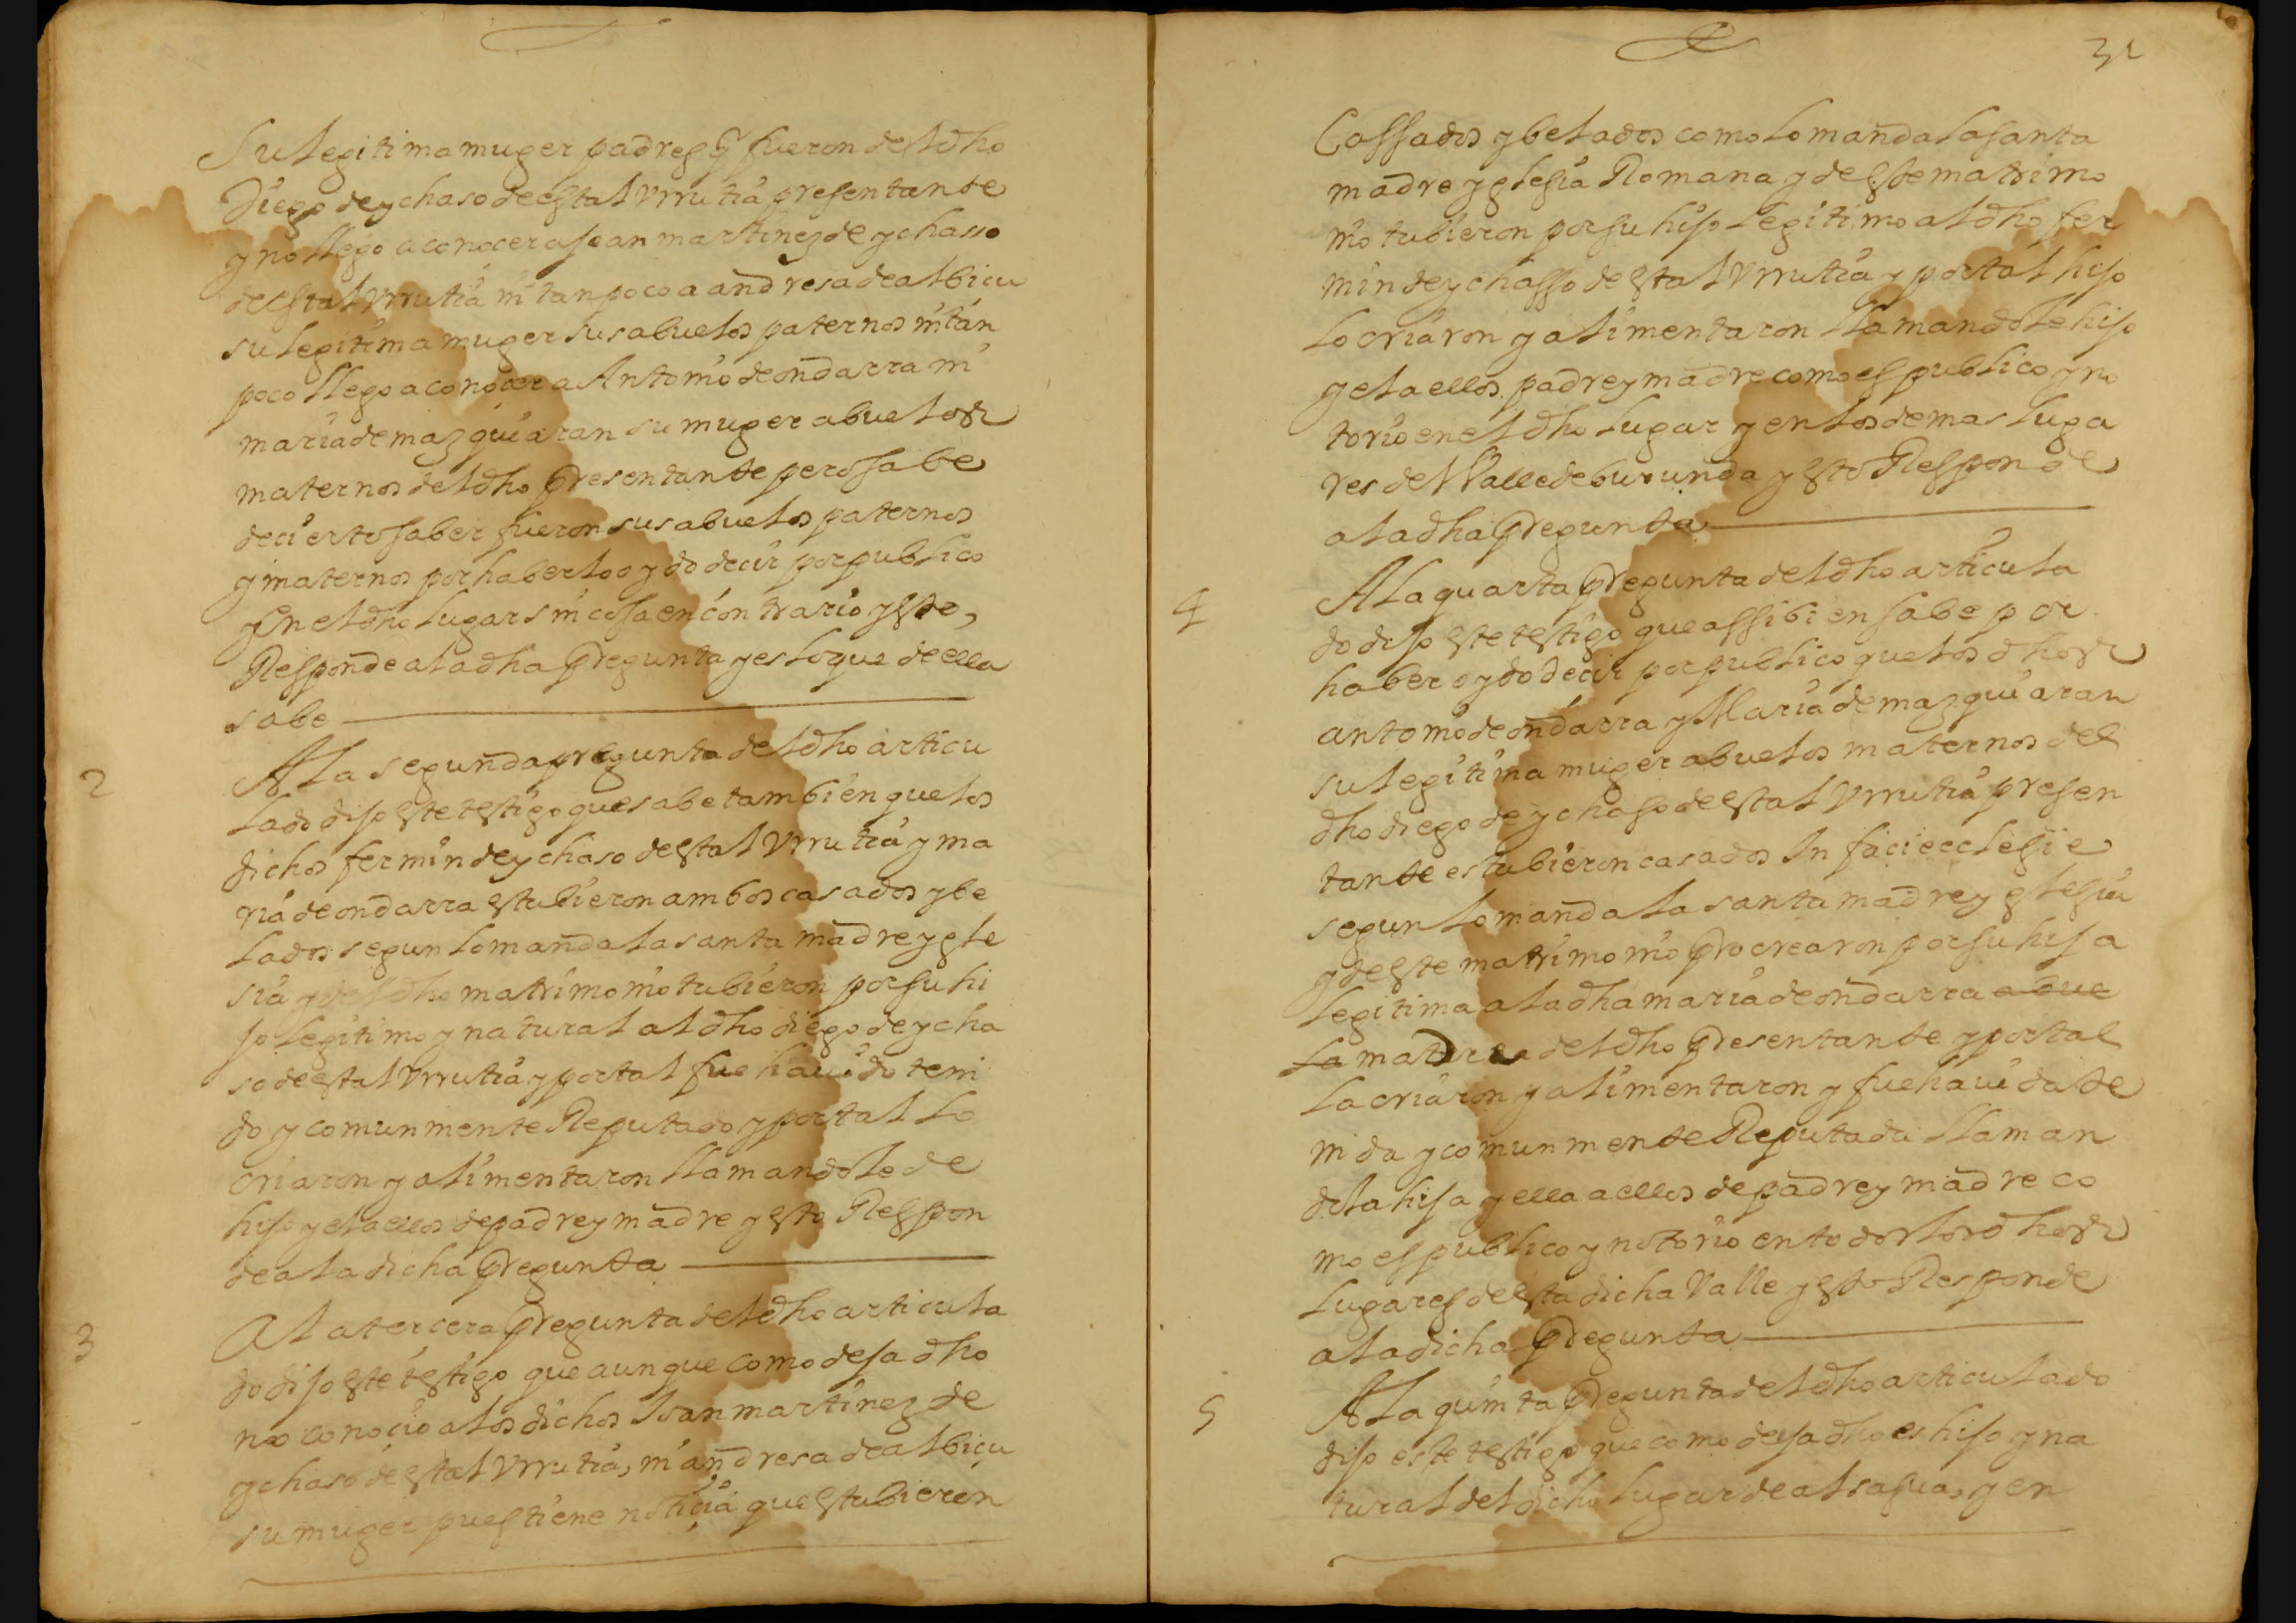 Su legitima muger padres q̃ fueron del dho
Diego de ychaso de estal Vrrutia presentante
y no llego a conocer a Joan martinez de ychasso
de estal Vrrutia ni tanpoco a andresa de albicu
su legitima muger sus abuelos paternos ni tan
poco llego a conocer a Antonio de ondarra ni
maria de mazquiaran su muger abuelos
maternos del dho Presentante pero sabe
de cierto saber fueron sus abuelos paternos
y maternos por haberlo oydo decir por publico
En el dho lugar sin cosa en contrario y esto,
Responde a la dha Pregunta y es lo que de ella
sabe
2
A La segunda pregunta del dho articu
lado dijo este testigo que sabe tambien que los
dichos fermin de ychaso de estal Vrrutia y ma
ria de ondarra estubieron ambos casados y be
lados segun lo manda la santa madre ygle
sia y del dho matrimonio tubieron por su hi
jo legitimo y natural al dho diego de ycha
so de estal Vrrutia y por tal fue hauido teni
do y comunmente Reputado y por tal lo
criaron y alimentaron llamandole de
hijo y el a ellos de padre y madre y esto Respon
de a la dicha Pregunta
3
A la tercera Pregunta del dho articula
do dijo este testigo que aunque como deja dho
no conocio a los dichos Joan martinez de
ychaso de estal Vrrutia, ni andresa de albicu
su muger pues tiene noticia que estubieron
31
Cassados y belados como lo manda la santa
madre yglesia Romana y de este matrimo
nio tubieron por su hijo legitimo al dho fer
min de ychasso de estal Vrrutia y por tal hijo
lo criaron y alimentaron llamandole hijo
y el a ellos padre y madre como es publico y no
torio en el dho lugar y en los demas luga
res del Valle de burunda y esto Responde
a la dha Pregunta
4
A La quarta Pregunta del dho articula
do dijo este testigo que assi bien sabe por
haber oydo decir por publico que los dhos
antonio de ondarra y Maria de mazquiaran
su legitima muger abuelos maternos del
dho diego de ychaso de estal Vrrutia presen
tante estubieron casados In facie eclesie
segun lo manda la santa madre yglesia
y de este matrimonio Procrearon por su hija
legitima a la dha maria de ondarra abue
la madre del dho Presentante y por tal
la criaron y alimentaron y fue hauida te
nida y comunmente Reputada llaman
dola hija y ella a ellos de padre y madre co
mo es publico y notorio en todos los dhos
lugares de esta dicha Valle y esto Responde
a la dicha Pregunta
5
A La quinta Pregunta del dho articulado
dijo este testigo que como deja dho es hijo y na
tural del dicho lugar de alsasua, y en